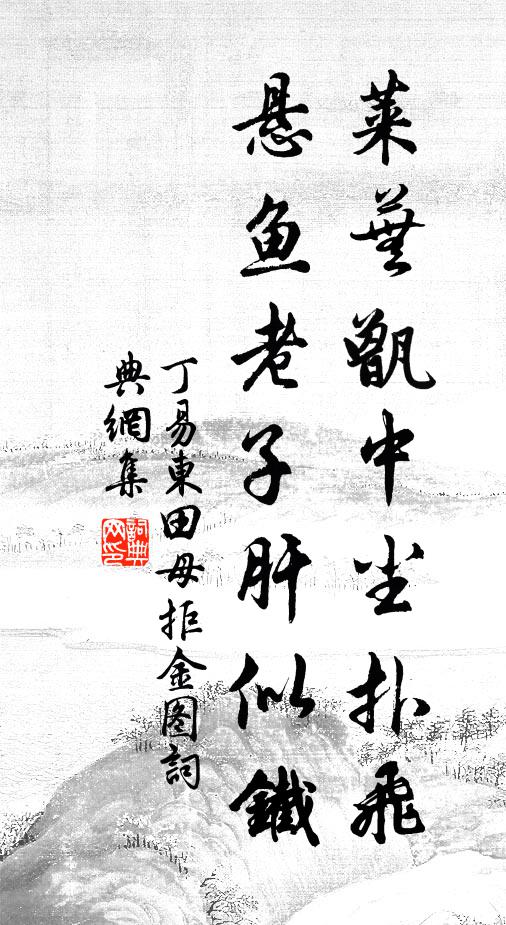 莱蕪甑中尘扑飛
悬鱼老子肝似鐵
丁易東田母拒金图詞
典網集
詞典网印